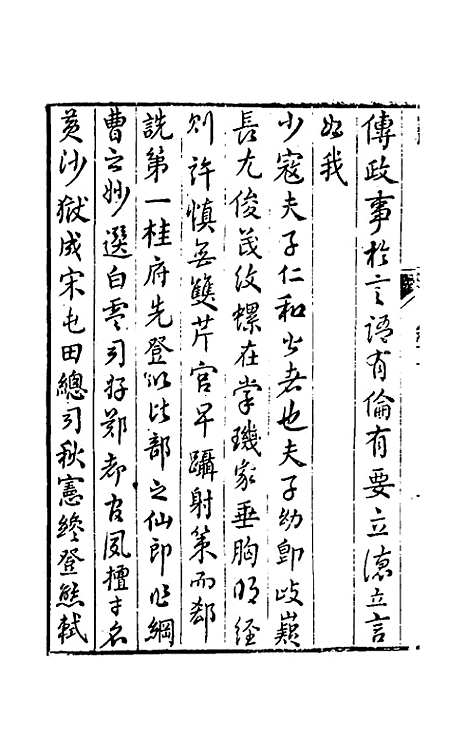 傳政事於言語有倫有要立德立言
如我
少寇夫子仁和君者也夫子幼即歧嶷
長尤俊茂紋螺在掌璣家垂胸明經
則許慎無雙芹宫早躡射策而郄
詵第一桂府先登以比部之仙郎作綱
曹之妙選白雲司好鄭都官夙擅才名
黃沙獄成宋屯田總司秋憲終登熊軾